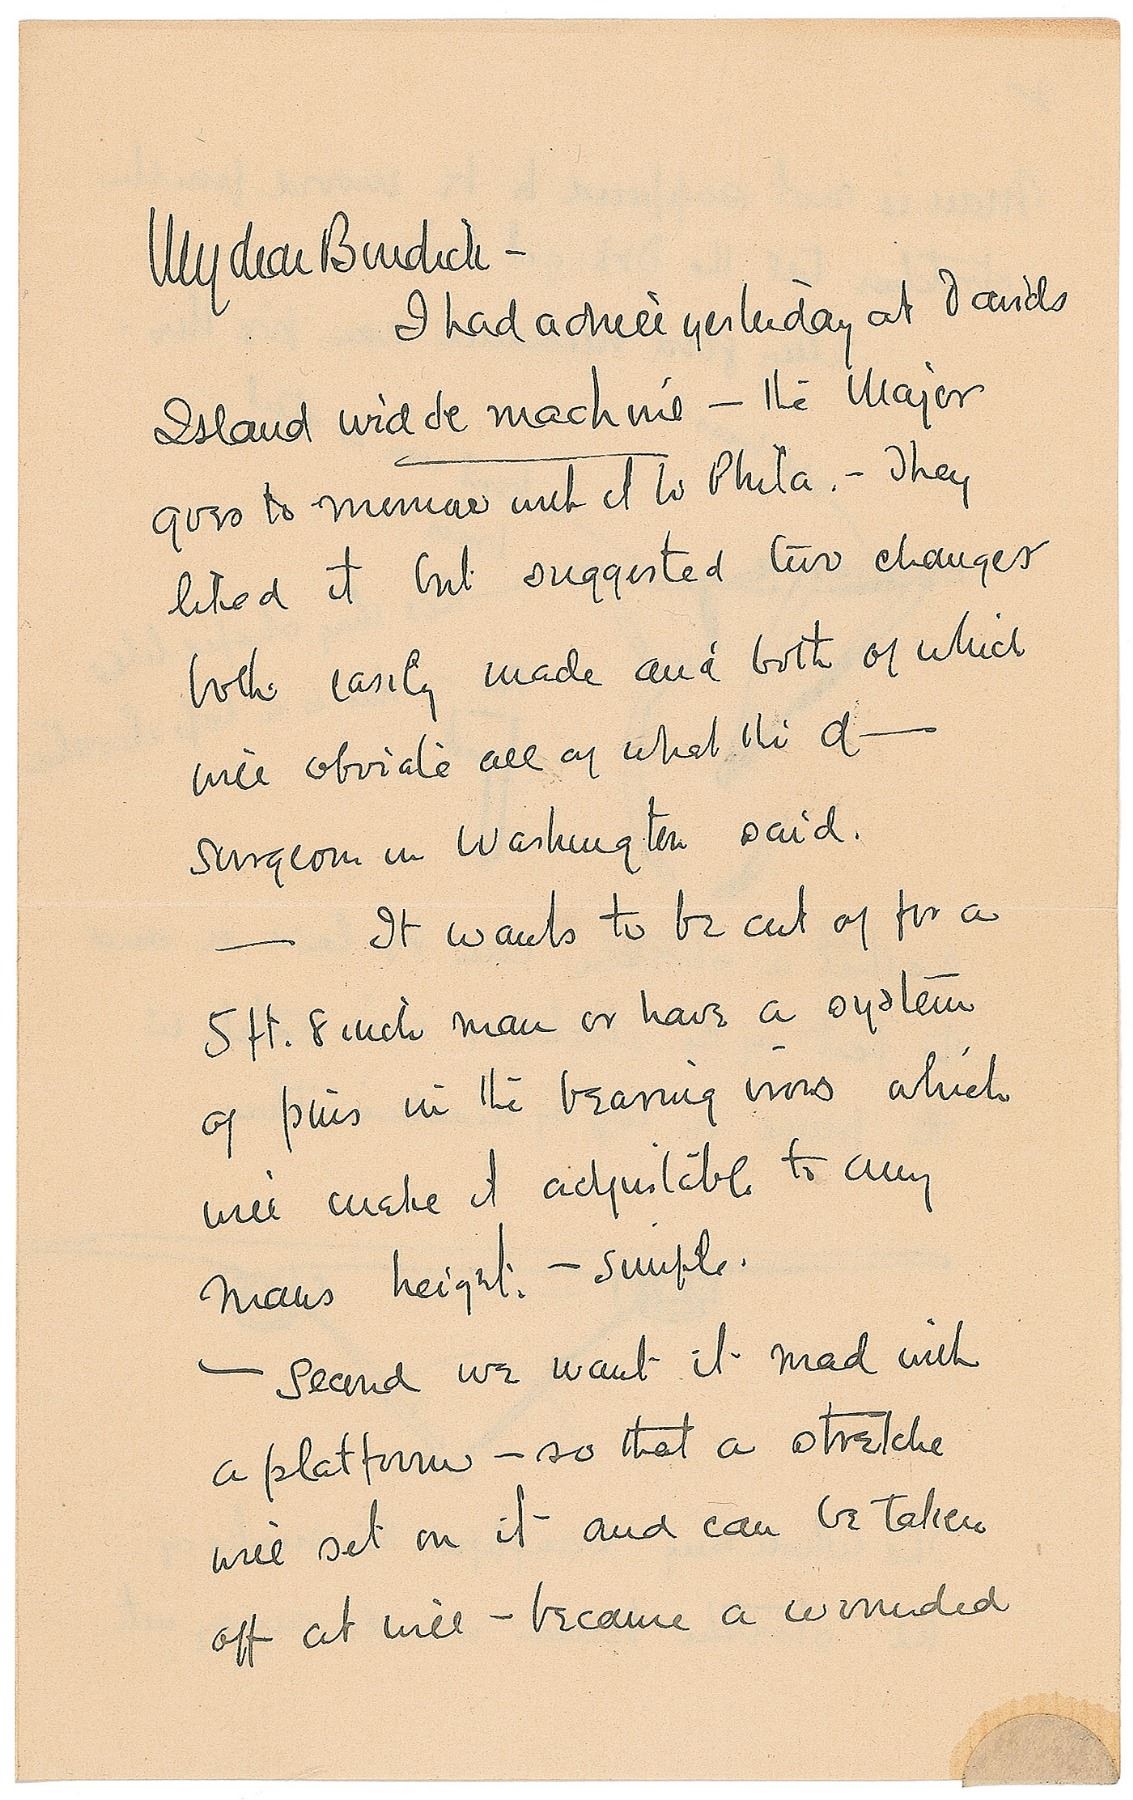 My dear Burdick -
I had a drill yesterday at Davids
Island with de machine - the Major
goes to with it to Phila. - They
liked it but suggested two changes
both easily made and both of which
will obviate all of what the d—
surgeon in Washington said.
— It wants to be cut of for a
5 ft. 8 inch man or have a system
of pins in the bearing irons which
will make it adjustable to any
mans height. - simple.
— Second we want it mad with
a platform - so that a stretche
will set on it and can be taken
off at will - because a wounded